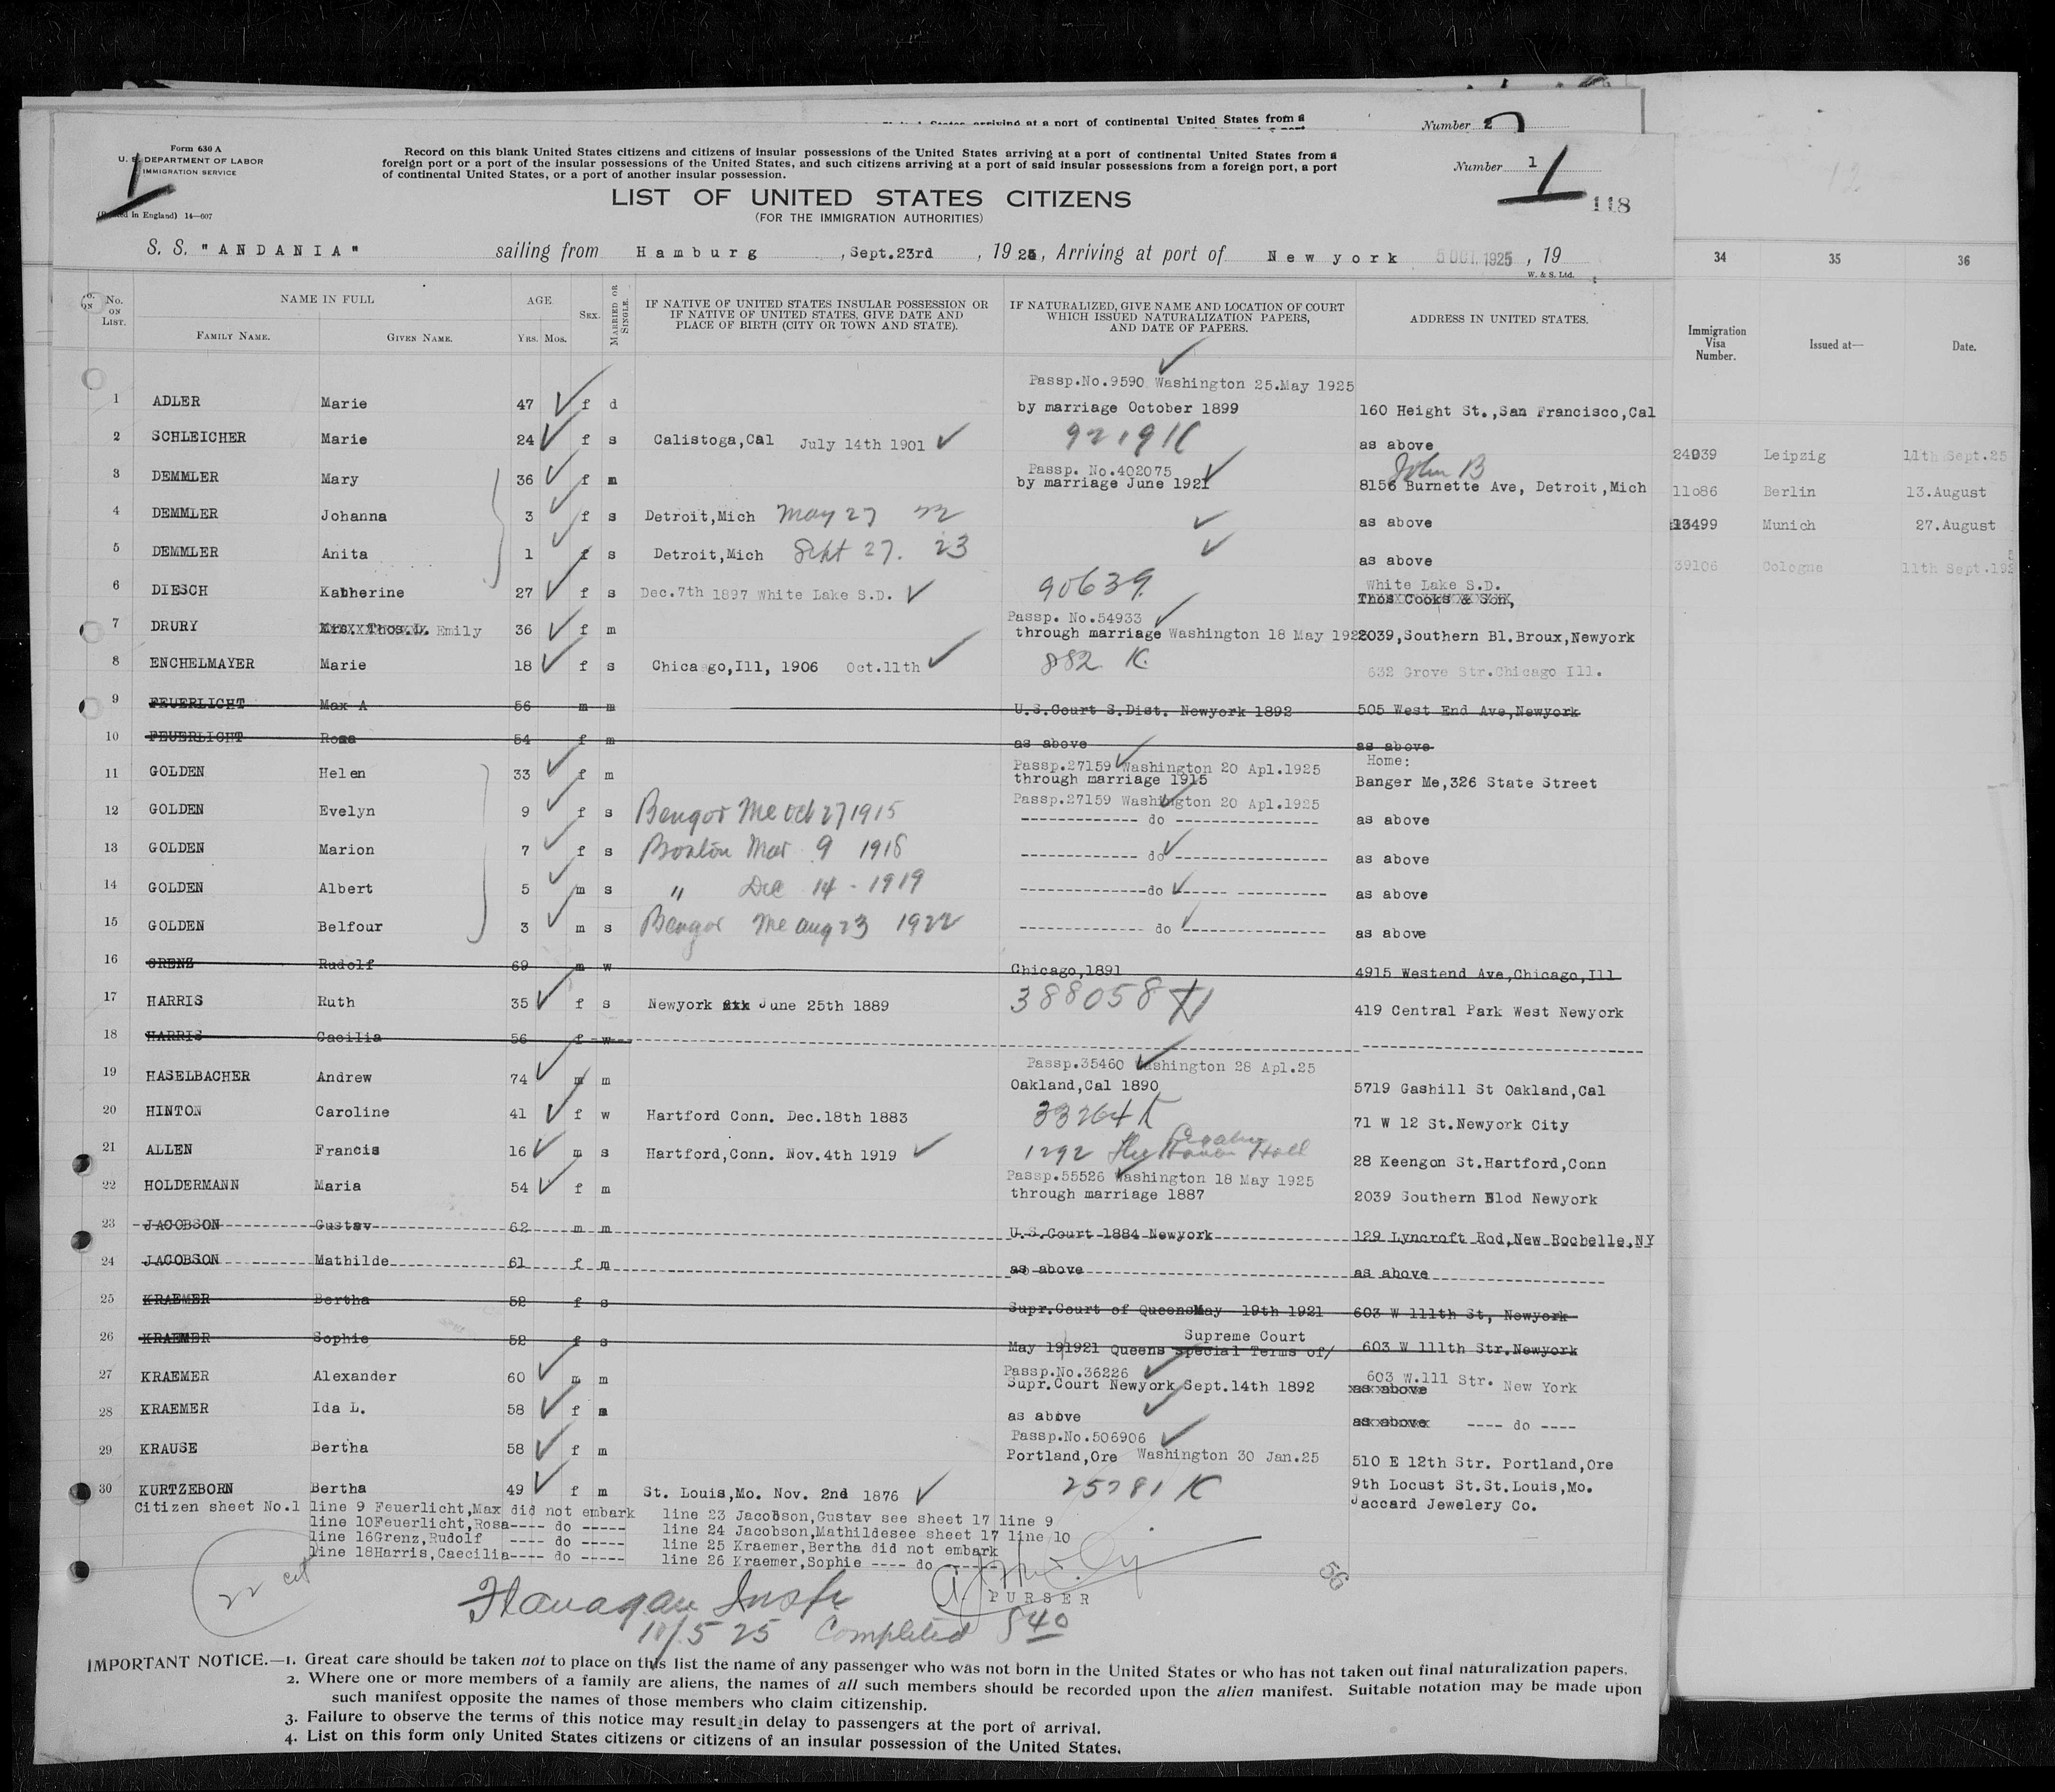 United States arriving at a port of continental United States from a
Number 2
Form 630 A
U. S. DEPARTMENT OF LABOR
IMMIGRATION SERVICE
(Printed in England) 14—607
Record on this blank United States citizens and citizens of insular possessions of the United States arriving at a port of continental United States from a
foreign port or a port of the insular possessions of the United States, and such citizens arriving at a port of said insular possessions from a foreign port, a port
of continental United States, or a port of another insular possession.
Number 1
1
118
LIST OF UNITED STATES CITIZENS
(FOR THE IMMIGRATION AUTHORITIES)
S. S. "ANDANIA" sailing from Hamburg, Sept.23rd, 1925, Arriving at port of Newyork 5 OCT 1925, 19
W. & S. Ltd.
No. ON LIST. NAME IN FULL FAMILY NAME. GIVEN NAME. AGE YRS. MOS. SEX. MARRIED OR SINGLE. IF NATIVE OF UNITED STATES INSULAR POSSESSION OR IF NATIVE OF UNITED STATES, GIVE DATE AND PLACE OF BIRTH (CITY OR TOWN AND STATE). IF NATURALIZED, GIVE NAME AND LOCATION OF COURT WHICH ISSUED NATURALIZATION PAPERS, AND DATE OF PAPERS. ADDRESS IN UNITED STATES.
34 35 36
Immigration Visa Number. Issued at— Date.
Passp.No.9590 Washington 25.May 1925
1 ADLER Marie 47 f d by marriage October 1899 160 Height St.,San Francisco,Cal
2 SCHLEICHER Marie 24 f s Calistoga,Cal July 14th 1901 92191K as above
24039 Leipzig 11th Sept.25
Passp. No.402075 John B
3 DEMMLER Mary 36 f m by marriage June 1921 8156 Burnette Ave, Detroit,Mich
11086 Berlin 13.August
4 DEMMLER Johanna 3 f s Detroit,Mich May 27 22 as above
13499 Munich 27.August
5 DEMMLER Anita 1 f s Detroit,Mich Sept 27. 23 as above
39106 Cologne 11th Sept.192
White Lake S.D.
6 DIESCH Katherine 27 f s Dec.7th 1897 White Lake S.D. 90639 Thos Cooks & Son,
Passp. No.54933
7 DRURY Mrs. Thos.L. Emily 36 f m through marriage Washington 18 May 1925 2039,Southern Bl.Broux,Newyork
8 ENCHELMAYER Marie 18 f s Chicago,Ill, 1906 Oct.11th 882 K. 632 Grove Str.Chicago Ill.
9 FEUERLICHT Max A 56 m m U.S.Court S.Dist. Newyork 1892 505 West End Ave,Newyork
10 FEUERLICHT Rosa 54 f m as above as above
Passp.27159 Washington 20 Apl.1925 Home:
11 GOLDEN Helen 33 f m through marriage 1915 Banger Me,326 State Street
Passp.27159 Washington 20 Apl.1925
12 GOLDEN Evelyn 9 f s Bangor Me Oct 27 1915 do as above
13 GOLDEN Marion 7 f s Boston Mar 9 1918 do as above
14 GOLDEN Albert 5 m s " Dec 14 - 1919 do as above
15 GOLDEN Belfour 3 m s Bangor Me aug 23 1922 do as above
16 GRENZ Rudolf 69 m w Chicago,1891 4915 Westend Ave,Chicago,Ill
17 HARRIS Ruth 35 f s Newyork June 25th 1889 388058 419 Central Park West Newyork
18 HARRIS Caecilia 56 f w
Passp.35460 Washington 28 Apl.25
19 HASELBACHER Andrew 74 m m Oakland,Cal 1890 5719 Gashill St Oakland,Cal
20 HINTON Caroline 41 f w Hartford Conn. Dec.18th 1883 33264 K 71 W 12 St.Newyork City
21 ALLEN Francis 16 m s Hartford,Conn. Nov.4th 1919 1292 28 Keengon St.Hartford,Conn
Passp.55526 Washington 18 May 1925
22 HOLDERMANN Maria 54 f m through marriage 1887 2039 Southern Blod Newyork
23 JACOBSON Gustav 62 m m U.S.Court 1884 Newyork 129 Lyncroft Rod,New Rochelle,NY
24 JACOBSON Mathilde 61 f m as above as above
25 KRAEMER Bertha 52 f s Supr.Court of Queens May 19th 1921 603 W 111th St, Newyork
Supreme Court
26 KRAEMER Sophie 52 f s May 19 1921 Queens Special Terms of/ 603 W 111th Str.Newyork
Passp.No.36226 603 W.111 Str. New York
27 KRAEMER Alexander 60 m m Supr.Court Newyork Sept.14th 1892 as above
28 KRAEMER Ida L. 58 f m as above as above ---- do ----
Passp.No.506906
29 KRAUSE Bertha 58 f m Portland,Ore Washington 30 Jan.25 510 E 12th Str. Portland,Ore
30 KURTZEBORN Bertha 49 f m St. Louis,Mo. Nov. 2nd 1876 25281 K 9th Locust St.St.Louis,Mo.
Jaccard Jewelery Co.
Citizen sheet No.1 line 9 Feuerlicht,Max did not embark line 23 Jacobson,Gustav see sheet 17 line 9
line 10Feuerlicht,Rosa---- do ----- line 24 Jacobson,Mathildesee sheet 17 line 10
line 16Grenz,Rudolf ---- do ----- line 25 Kraemer,Bertha did not embark
line 18Harris,Caecilia---- do ----- line 26 Kraemer,Sophie ---- do -----
22 cit
56
PURSER
Flanagan Insp
10/5 25 Completed 840
IMPORTANT NOTICE.—1. Great care should be taken not to place on this list the name of any passenger who was not born in the United States or who has not taken out final naturalization papers.
2. Where one or more members of a family are aliens, the names of all such members should be recorded upon the alien manifest. Suitable notation may be made upon
such manifest opposite the names of those members who claim citizenship.
3. Failure to observe the terms of this notice may result in delay to passengers at the port of arrival.
4. List on this form only United States citizens or citizens of an insular possession of the United States.